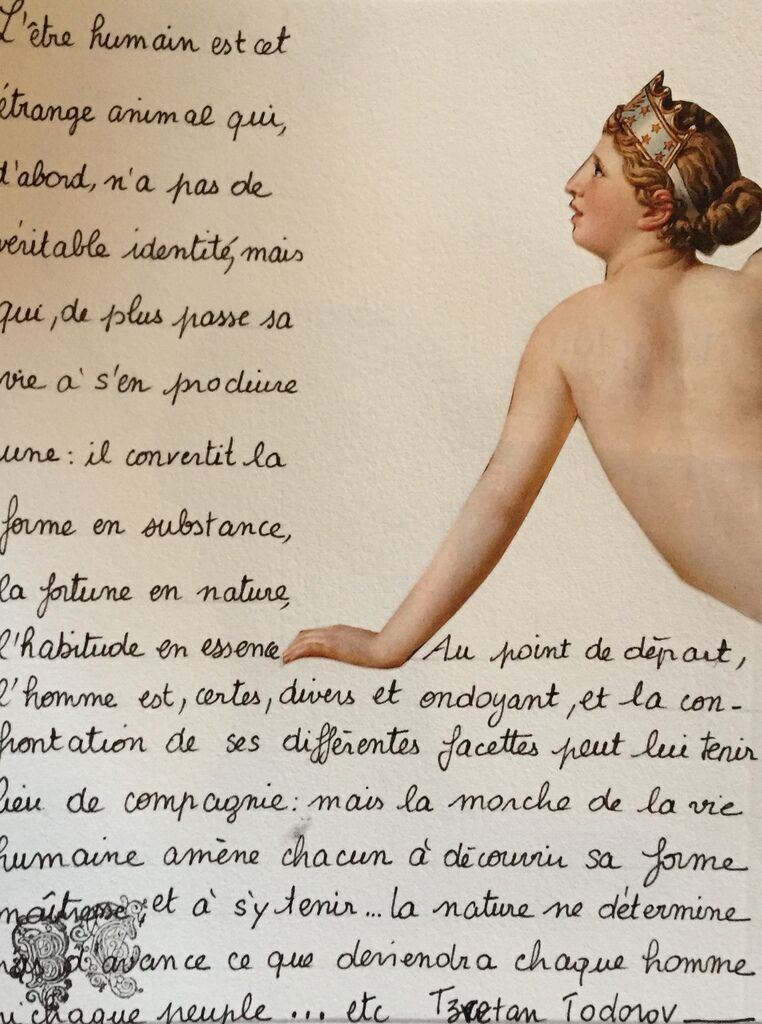 L'être humain est cet
étrange animal qui,
d'abord, n'a pas de
véritable identité, mais
qui, de plus passe sa
vie à s'en produire
une: il convertit la
forme en substance,
la fortune en nature,
l'habitude en essence,
Au point de départ,
l'homme est, certes, divers et ondoyant, et la con-
frontation de ses différentes facettes peut lui tenir
lieu de compagnie: mais la marche de la vie
humaine amène chacun à découvrir sa forme
maîtresse, et à s'y tenir... la nature ne détermine
pas d'avance ce que deviendra chaque homme
ni chaque peuple ... etc Tzvetan Todorov